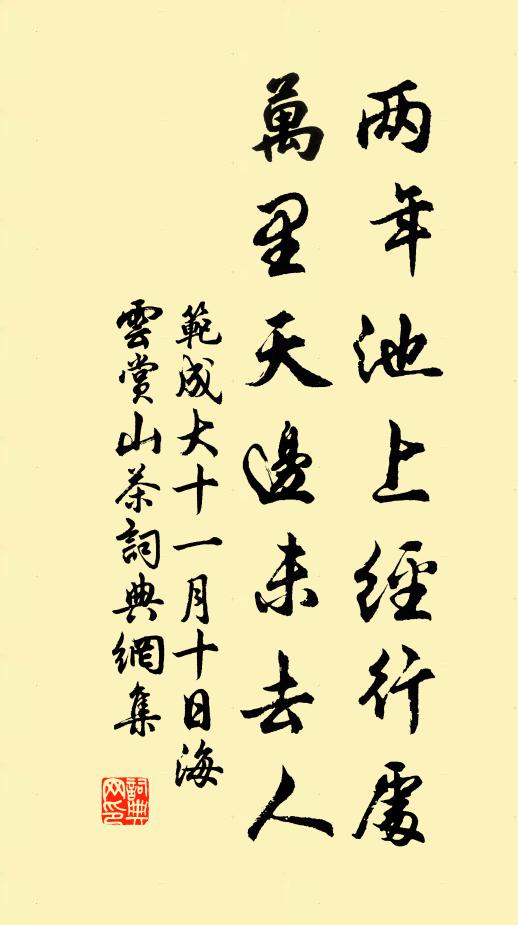 两年池上經行處
萬里天邊未去人
範成大十一月十日海
雲賞山茶詞典網集
詞典
网印